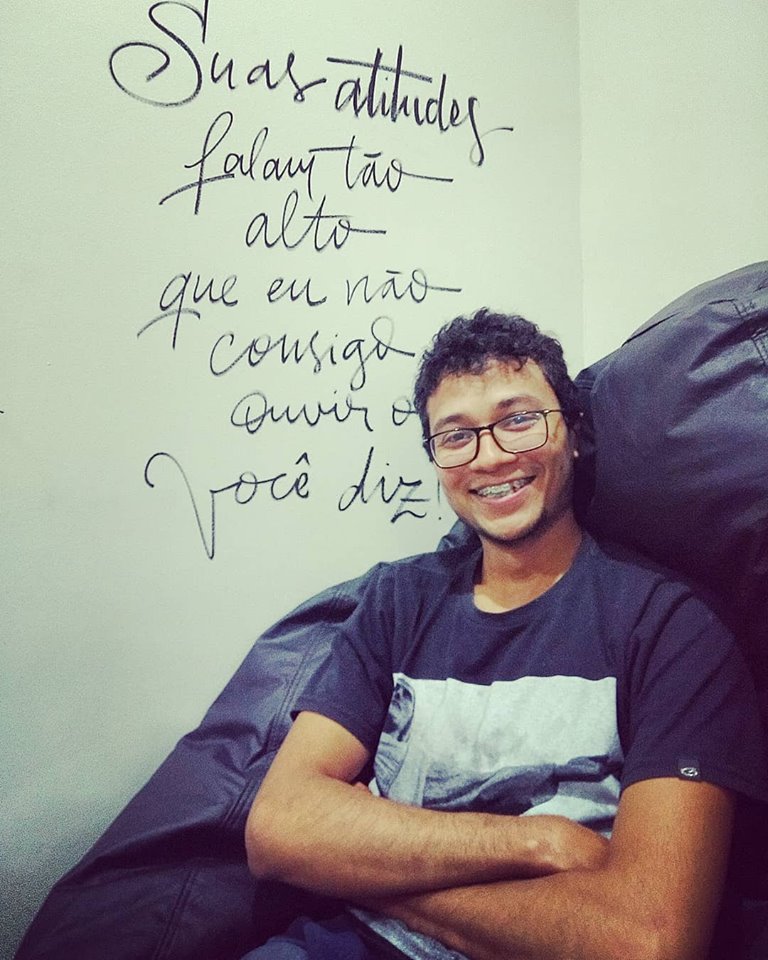 Suas atitudes
falam tão
alto
que eu não
consigo
ouvir o
você diz!